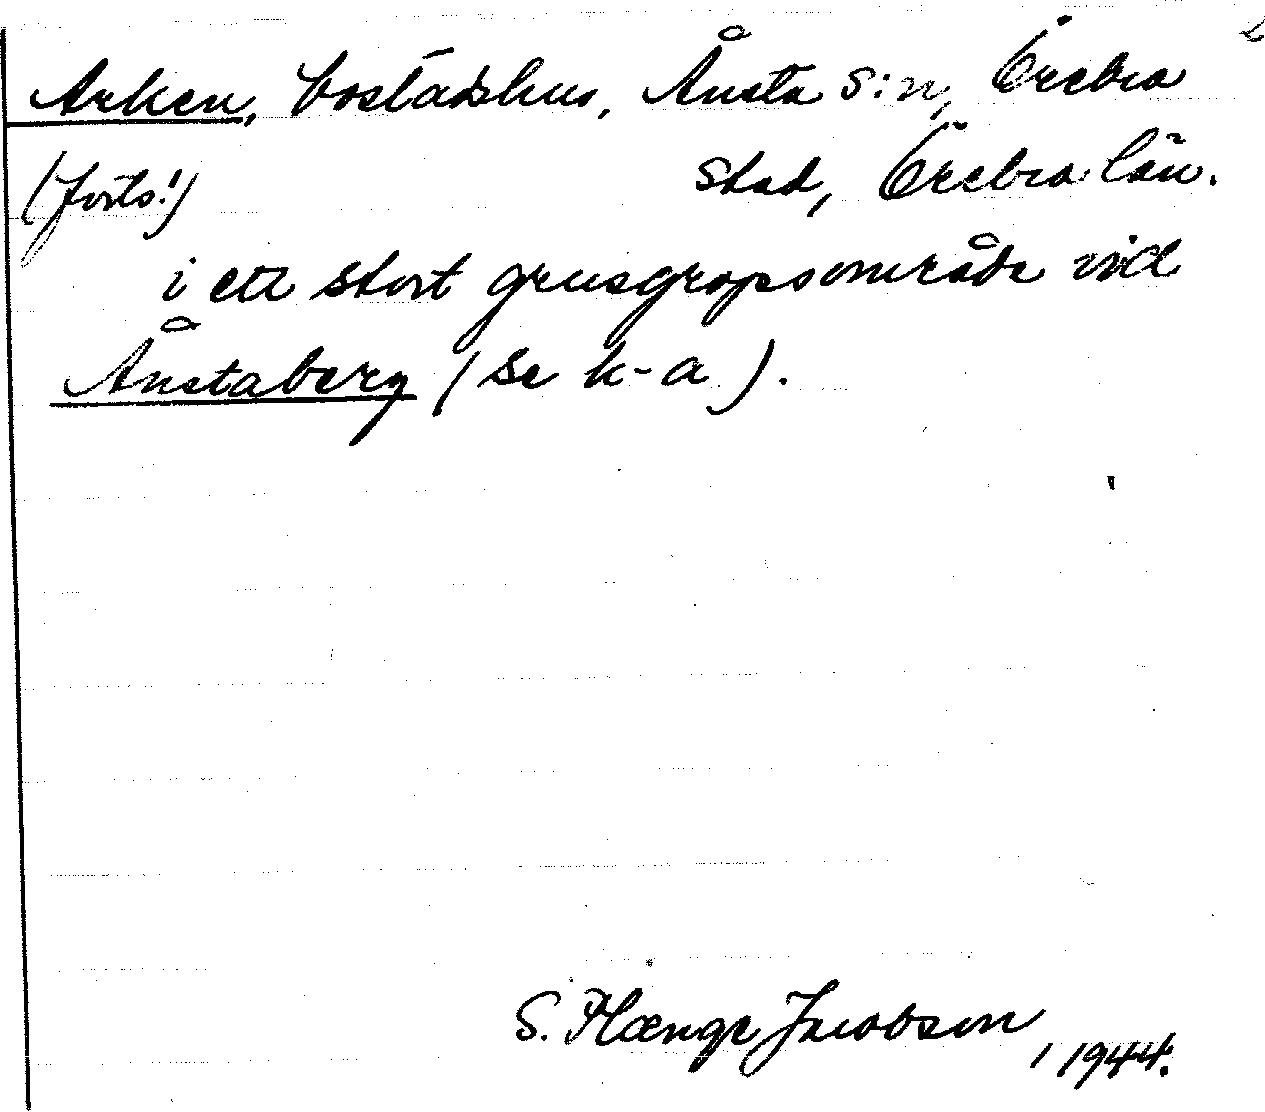 Arken, bostadshus, Ånsta s:n, Örebro
(forts!) stad, Örebro län.
i ett stort grusgropsområde vid
Ånstaberg (se k-a).
S. Plænge Jacobson, 1944.